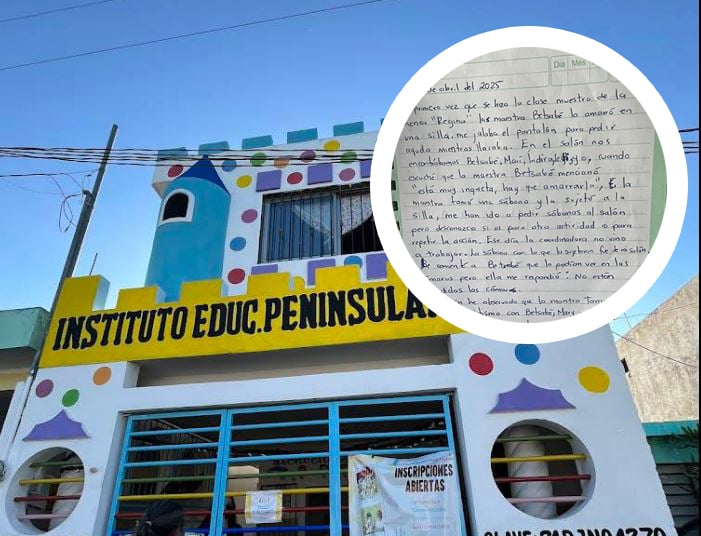 Día Mes
de abril del 2025
primera vez que se hizo la clase muestra de la
menor "Regina" la maestra Betsabé la amarró en
una silla, me jalaba el pantalón para pedir
ayuda mientras lloraba. En el salón nos
encontrábamos Betsabé, Mari, y yo, cuando
escuché que la maestra Betsabé mencionó
"está muy inquieta, hay que amarrarla", la
maestra tomó una sábana y la sujetó a la
silla, me han ido a pedir sábanas al salón
pero desconozco si es para otra actividad o para
repetir la acción. Ese día la coordinadora no vino
a trabajar. la sábana con la que la sujetaron fue de mi salón.
Le comenté a Betsabé que lo podían ver en las
cámaras pero ella me respondió: No están
las cámaras
he observado que la maestra
con Betsabé, Mary
INSTITUTO EDUC. PENINSULA
INSCRIPCIONES
ABIERTAS